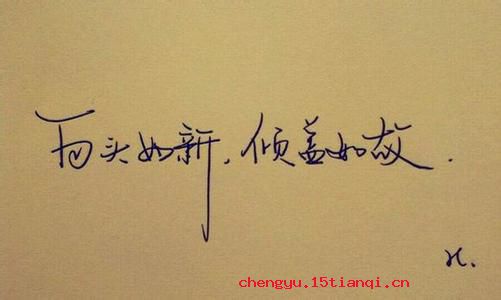 百头如新，倾盖如故.
chengyu.15tianqi.cn